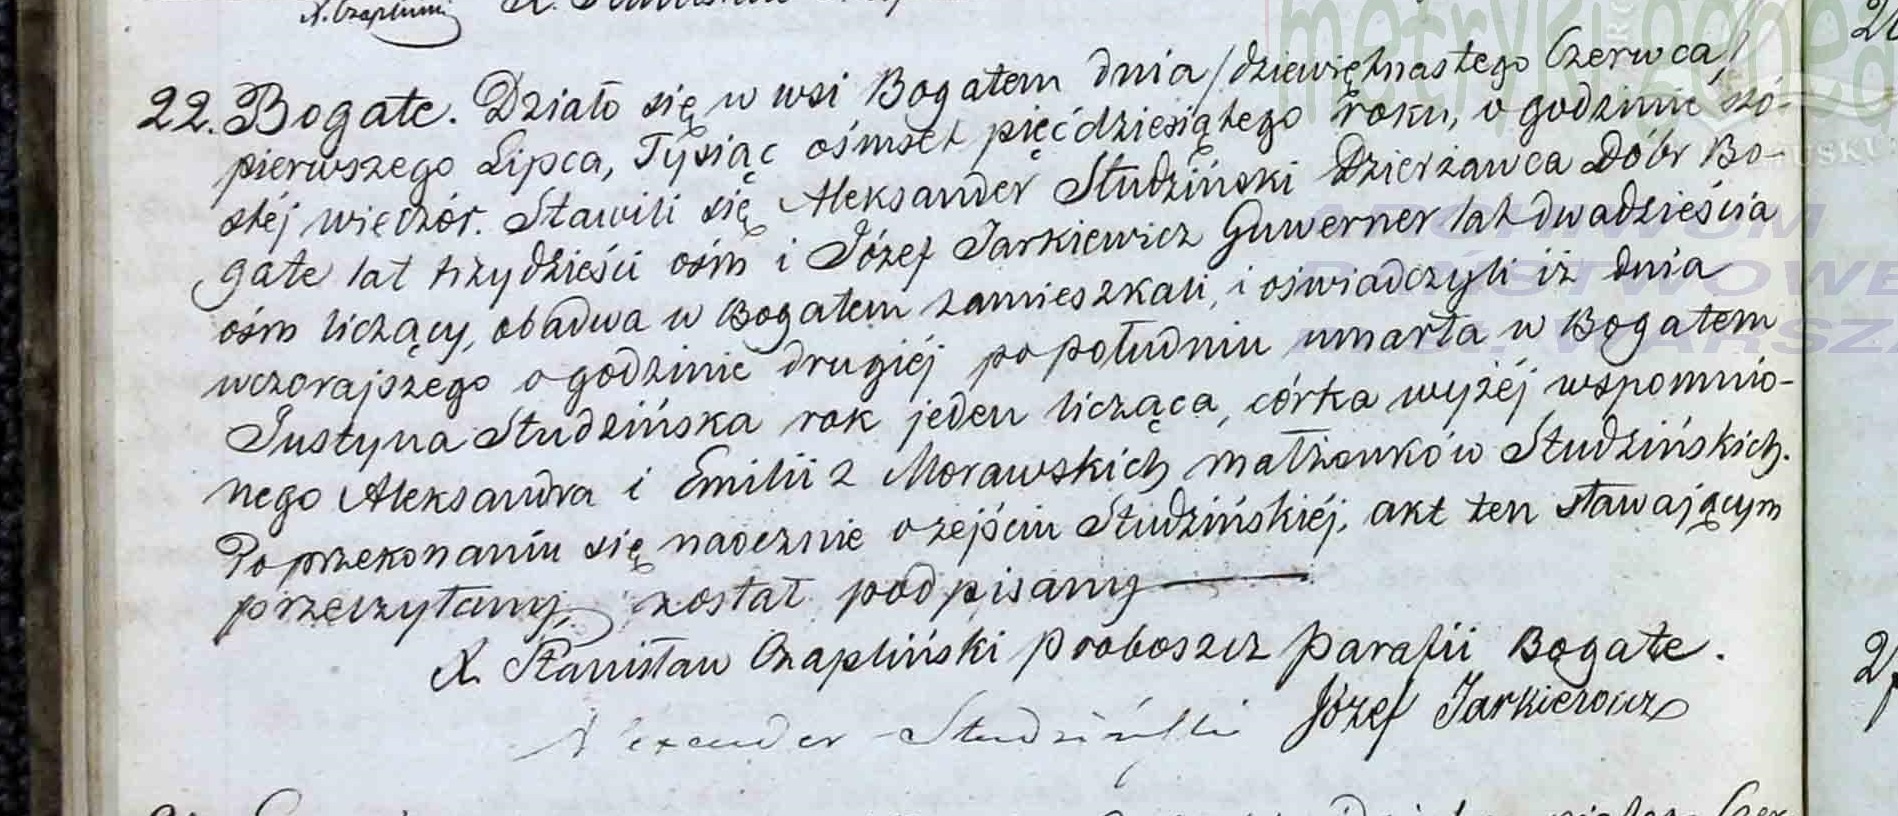 22. Bogate. Działo się w wsi Bogatem dnia /dziewiętnastego Czerwca/
pierwszego Lipca, Tysiąc ośmset pięćdziesiątego roku, o godzinie szó-
stéj wieczór. Stawili się Aleksander Studziński Dzierżawca Dóbr Bo-
gate lat trzydzieści ośm i Józef Jarkiewicz Guwerner lat dwadzieścia
ośm liczący, obadwa w Bogatem zamieszkali, i oświadczyli iż dnia
wczorajszego o godzinie drugiéj po południu umarła w Bogatem
Justyna Studzińska rok jeden licząca, córka wyżéj wspomnio-
nego Aleksandra i Emilii z Morawskich małżonków Studzińskich.
Po przekonaniu się naocznie o zejściu Studzińskiéj, akt ten stawającym
przeczytany, został podpisany
X. Stanisław Czapliński Proboszcz Parafii Bogate.
Alexander Studziński Józef Jarkiewicz
metryki.gene
ARCHIWUM
PAŃSTWOWE
WARSZA